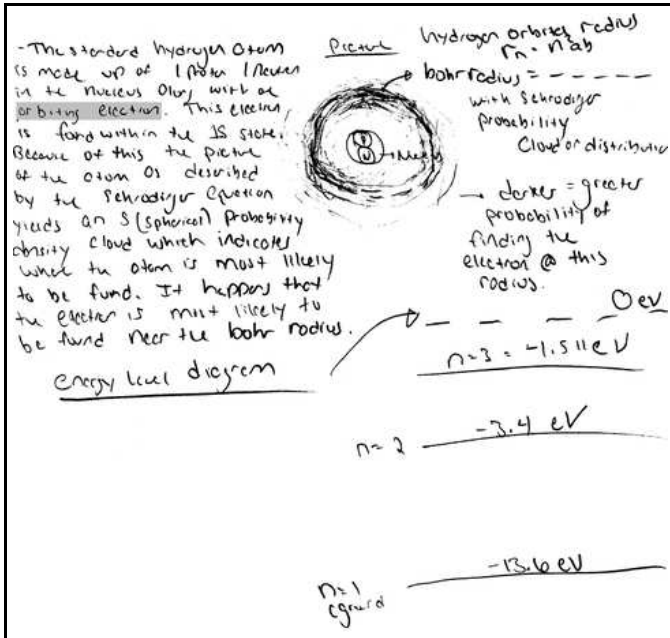 - The standard hydrogen atom
is made up of 1 Proton 1 Neutron
in the nucleus along with an
orbiting electron. This electron
is found within the 1S state.
Because of this the picture
of the atom as described
by the Schrodiger Equation
yields an S (spherical) Probability
density cloud which indicates
where the atom is most likely
to be found. It happens that
the electron is most likely to
be found near the bohr radius.
Picture
hydrogen orbites radius
bohr radius = - - - - - -
with Schrodiger
probability
Cloud or distribution
darker = greater
probability of
finding the
electron @ this
radius.
energy level diagram
0 eV
n=3 = -1.511 eV
n=2
-3.4 eV
-13.6 eV
n=1